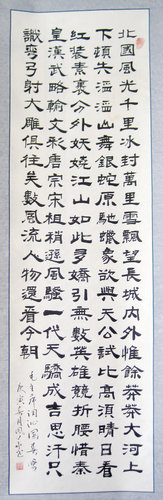 北國風光千里冰封萬里雪飄望長城內外惟餘莽莽大河上
下頓失滔滔山舞銀蛇原馳蠟象欲與天公試比高須晴日看
紅裝素裹分外妖嬈江山如此多嬌引無數英雄競折腰惜秦
皇漢武略輸文彩唐宗宋祖稍遜風騷一代天驕成吉思汗只
識彎弓射大雕俱往矣數風流人物還看今朝
毛主席詞沁園春雪
庚寅春月